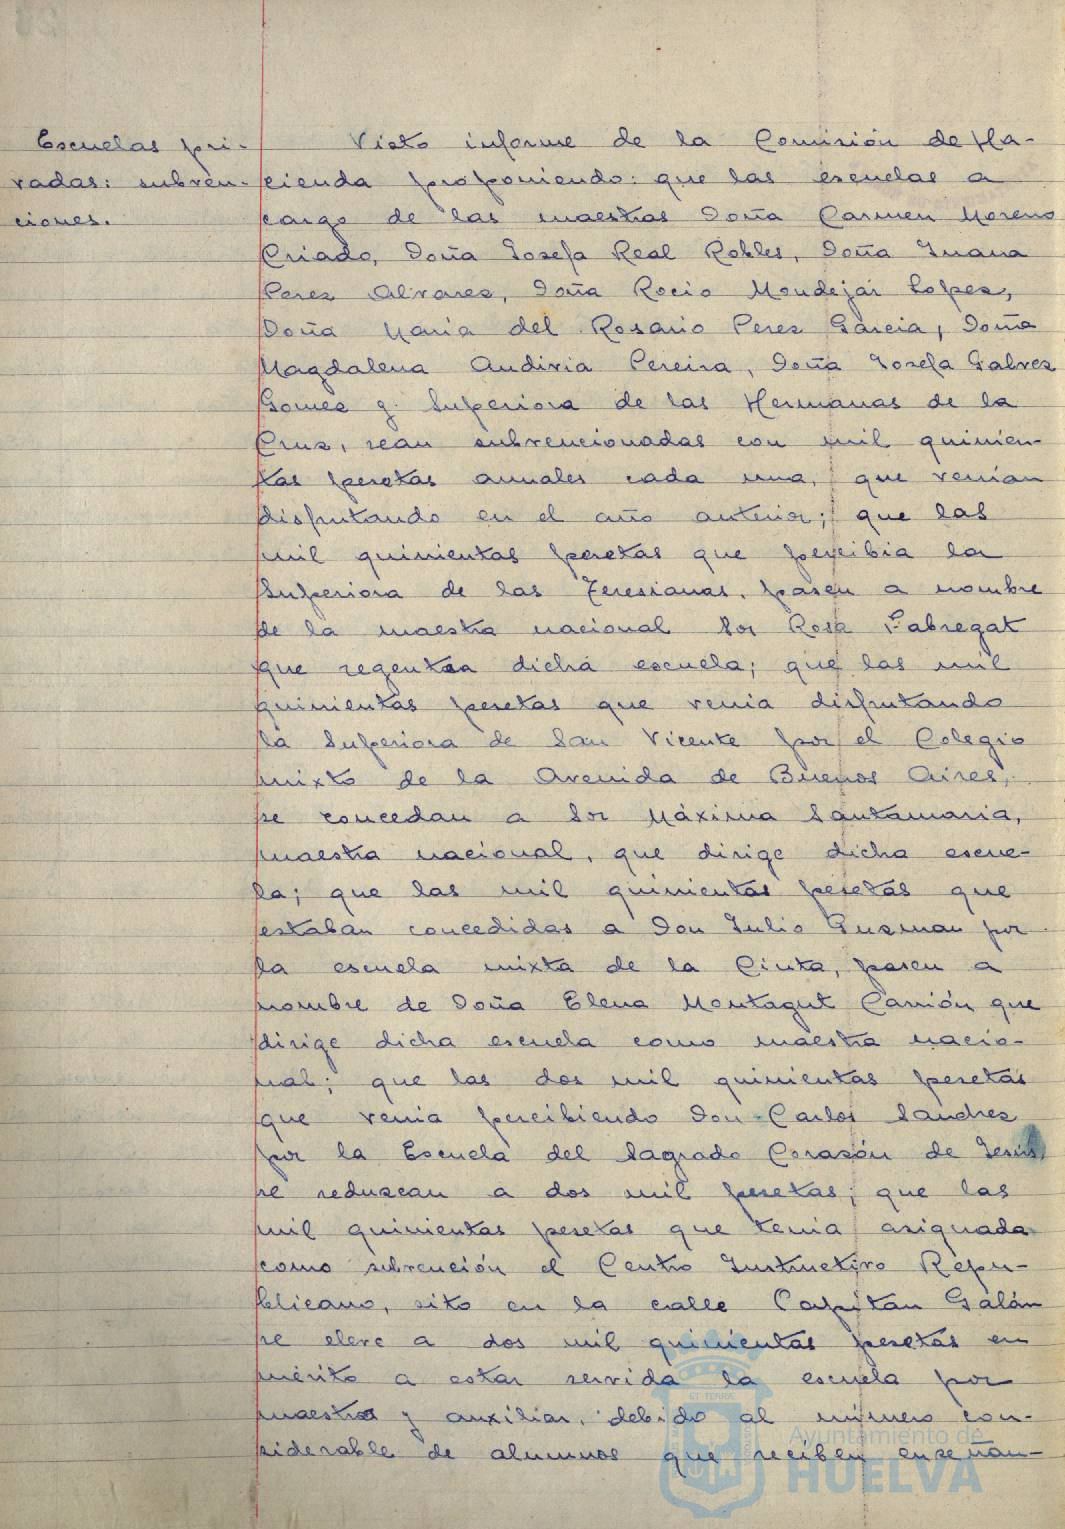 Escuelas pri-
vadas: subven-
ciones.
Visto informe de la Comisión de Ha-
cienda proponiendo: que las escuelas a
cargo de las maestras Doña Carmen Moreno
Criado, Doña Josefa Real Robles, Doña Juana
Perez Alvarez, Doña Rocio Mondejar Lopez,
Doña Maria del Rosario Perez Garcia, Doña
Magdalena Andivia Pereira, Doña Josefa Galvez
Gomez y Superiora de las Hermanas de la
Cruz, sean subvencionadas con mil quinien-
tas pesetas anuales cada una, que venian
disfrutando en el año anterior; que las
mil quinientas pesetas que percibia la
Superiora de las Teresianas, pasen a nombre
de la maestra nacional Sor Rosa Fabregat
que regenta dicha escuela; que las mil
quinientas pesetas que venia disfrutando
la Superiora de San Vicente por el Colegio
mixto de la Avenida de Buenos Aires,
se concedan a Sor Máxima Santamaria,
maestra nacional, que dirige dicha escue-
la; que las mil quinientas pesetas que
estaban concedidas a Don Julio Guzman por
la escuela mixta de la Cinta, pasen a
nombre de Doña Elena Montagut Carrión que
dirige dicha escuela como maestra nacio-
nal; que las dos mil quinientas pesetas
que venia percibiendo Don Carlos Sanchez
por la Escuela del Sagrado Corazón de Jesús,
se reduzcan a dos mil pesetas; que las
mil quinientas pesetas que tenia asignada
como subvención el Centro Instructivo Repu-
blicano, sito en la calle Capitan Galán
se eleve a dos mil quinientas pesetas en
mérito a estar servida la escuela por
maestro y auxiliar, debido al número con-
siderable de alumnos que reciben enseñan-
Ayuntamiento de
HUELVA